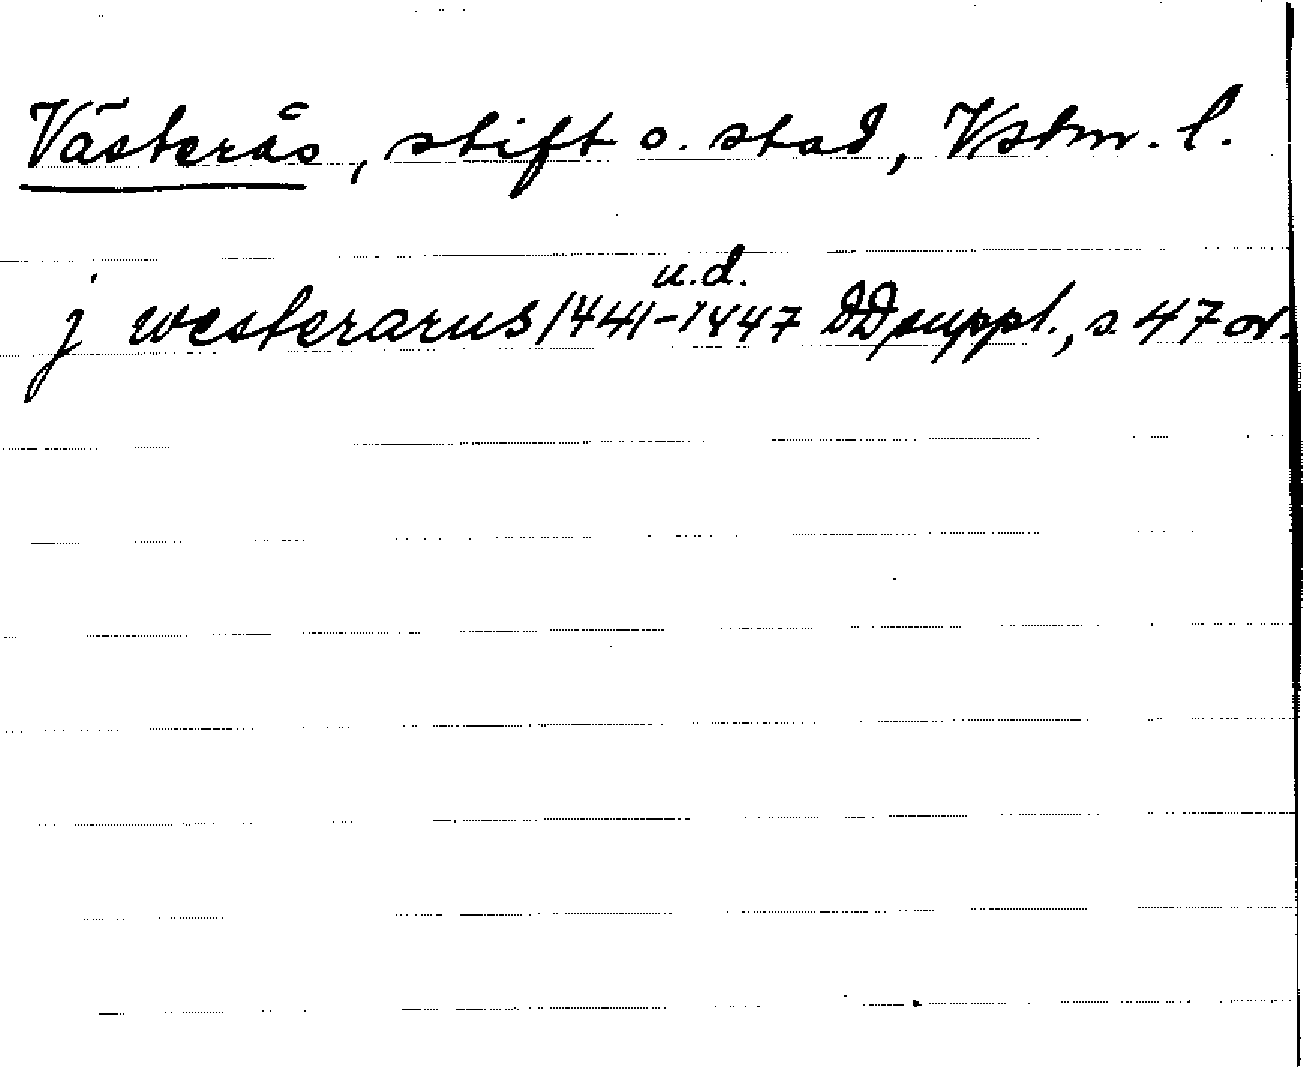 Västerås, stift o. stad, Vstm. l.
u.d.
j westerarus 1441-1447 DD suppl., s 47 or.